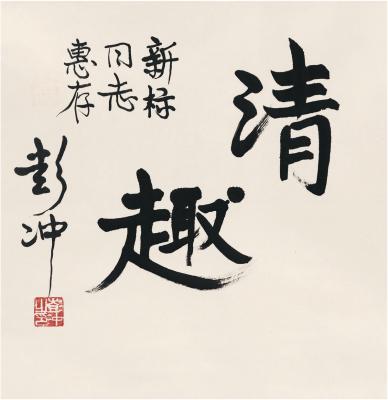 清
趣
新标
同志
惠存
彭冲